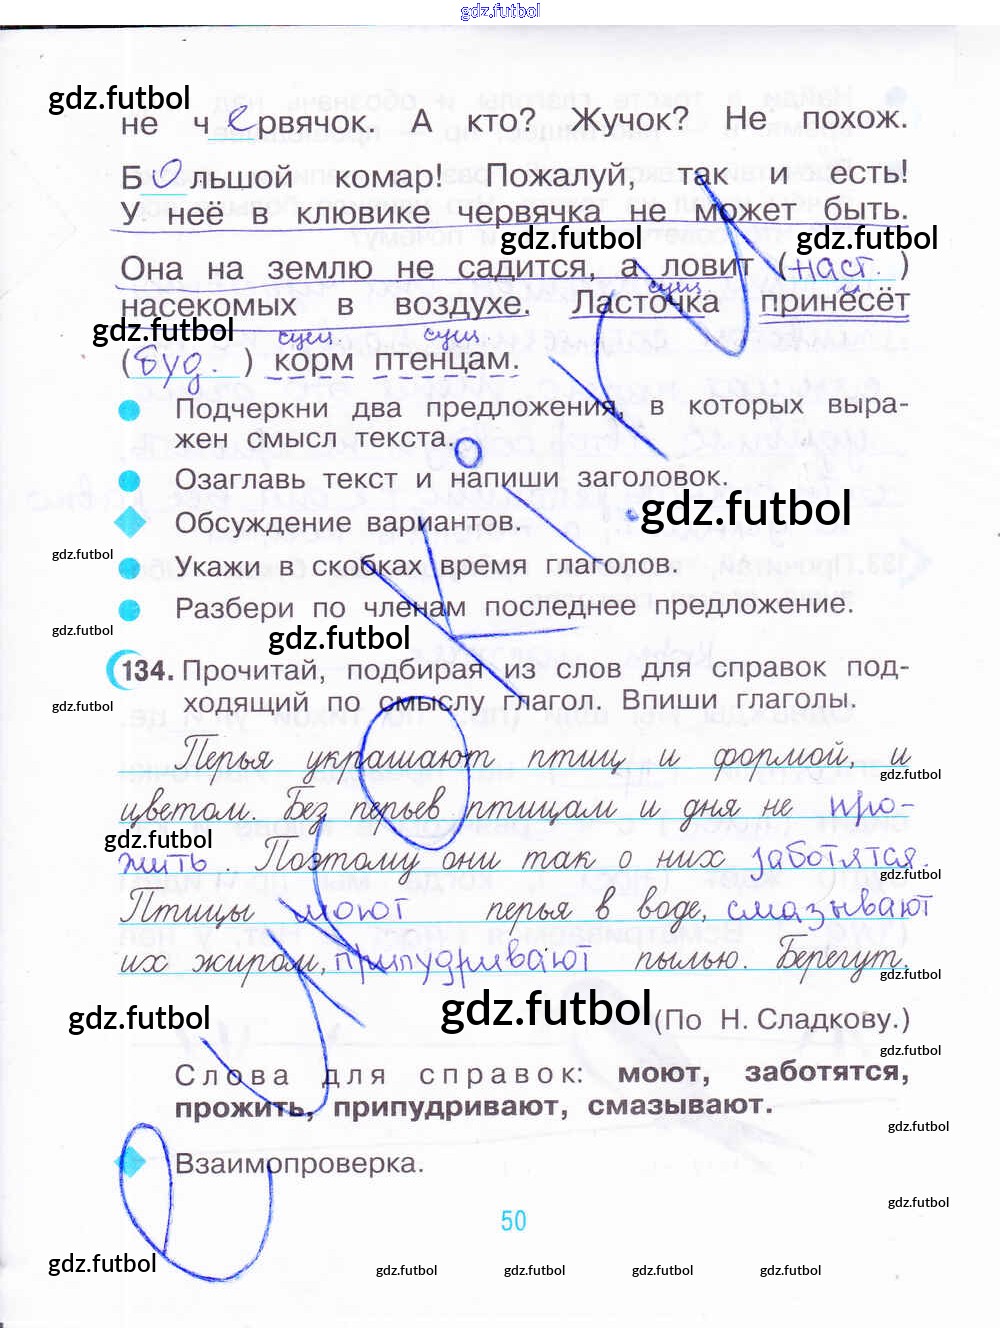 gdz.futbol
gdz.futbol
не червячок. А кто? Жучок? Не похож.
Большой комар! Пожалуй, так и есть!
У неё в клювике червячка не может быть.
gdz.futbol gdz.futbol
Она на землю не садится, а ловит (наст.)
сущ
насекомых в воздухе. Ласточка принесёт
gdz.futbol
сущ сущ
(буд.) корм птенцам.
Подчеркни два предложения, в которых выра-
жен смысл текста.
Озаглавь текст и напиши заголовок.
gdz.futbol
Обсуждение вариантов.
gdz.futbol
Укажи в скобках время глаголов.
Разбери по членам последнее предложение.
gdz.futbol
gdz.futbol
134. Прочитай, подбирая из слов для справок под-
ходящий по смыслу глагол. Впиши глаголы.
gdz.futbol
Перья украшают птиц и формой, и
gdz.futbol
цветом. Без перьев птицам и дня не про-
gdz.futbol
жить. Поэтому они так о них заботятся.
gdz.futbol
Птицы моют перья в воде, смазывают
их жиром, припудривают пылью. Берегут.
gdz.futbol
gdz.futbol gdz.futbol
(По Н. Сладкову.)
gdz.futbol
Слова для справок: моют, заботятся,
прожить, припудривают, смазывают.
gdz.futbol
Взаимопроверка.
gdz.futbol
50
gdz.futbol
gdz.futbol gdz.futbol gdz.futbol gdz.futbol